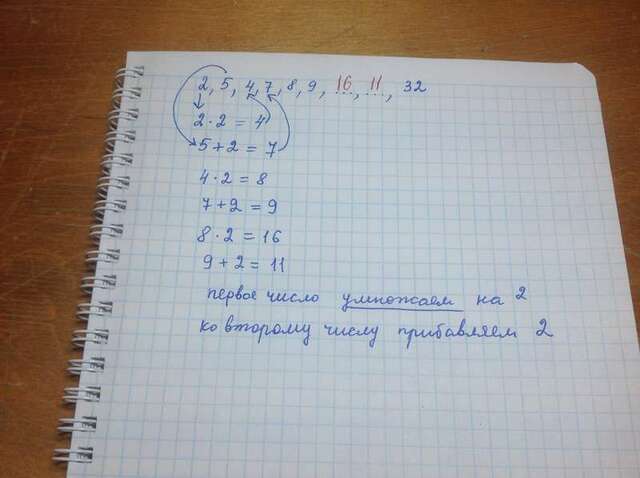 2, 5, 4, 7, 8, 9, 16, 11, 32
2 · 2 = 4
5 + 2 = 7
4 · 2 = 8
7 + 2 = 9
8 · 2 = 16
9 + 2 = 11
первое число умножаем на 2
ко второму числу прибавляем 2